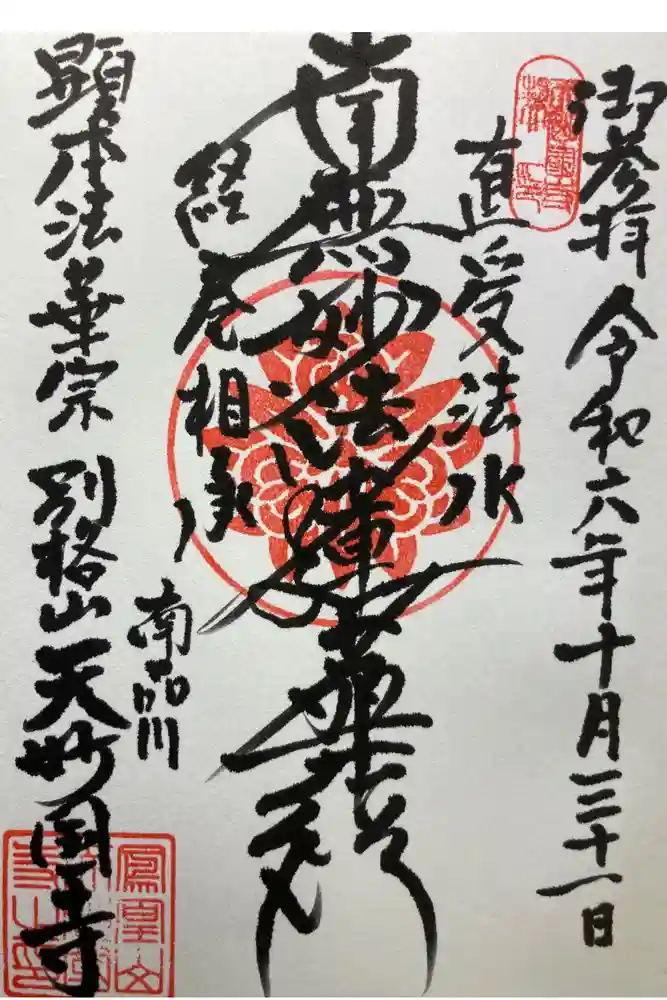 御参拝 令和六年十月三十一日
直受法水
南無妙法蓮華経
経巻相承
南品川
顕本法華宗 別格山 天妙国寺
鳳凰山